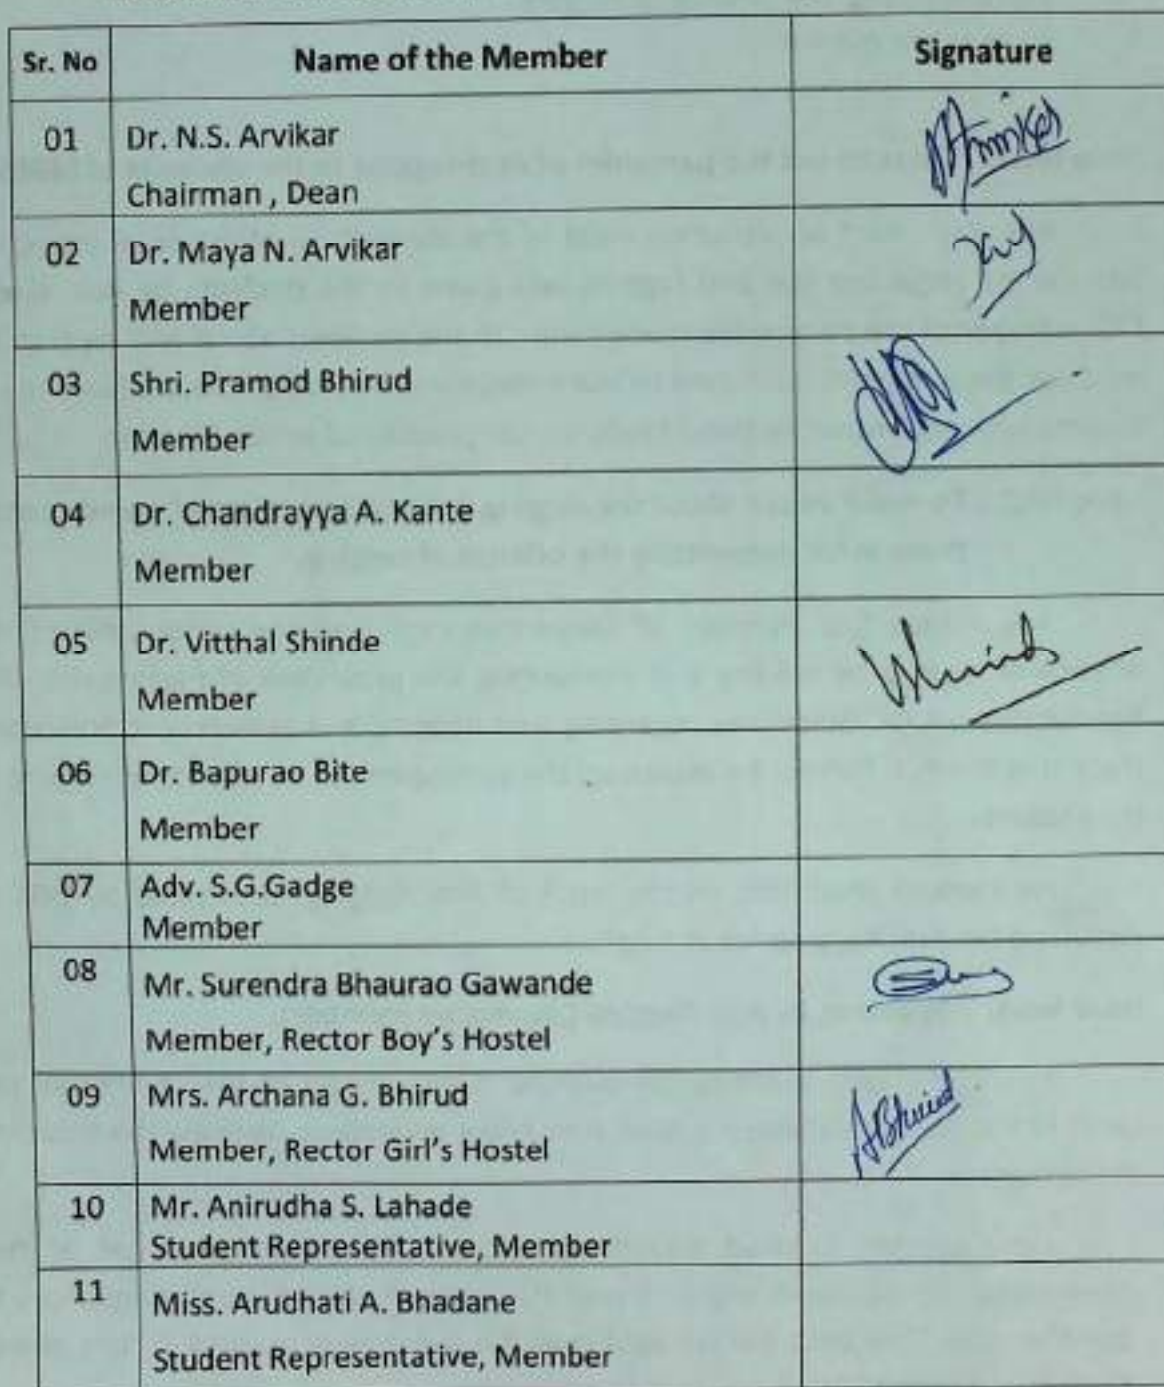 Sr. No Name of the Member Signature
01 Dr. N.S. Arvikar
Chairman , Dean
02 Dr. Maya N. Arvikar
Member
03 Shri. Pramod Bhirud
Member
04 Dr. Chandrayya A. Kante
Member
05 Dr. Vitthal Shinde
Member
06 Dr. Bapurao Bite
Member
07 Adv. S.G.Gadge
Member
08 Mr. Surendra Bhaurao Gawande
Member, Rector Boy's Hostel
09 Mrs. Archana G. Bhirud ABhirud
Member, Rector Girl's Hostel
10 Mr. Anirudha S. Lahade
Student Representative, Member
11 Miss. Arudhati A. Bhadane
Student Representative, Member